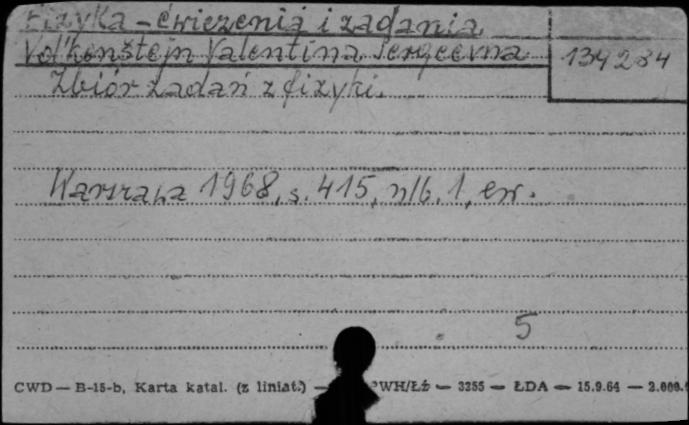 Fizyka - ćwiczenia i zadania
Vol'kenštejn Valentina Sergeevna 134284
Zbiór zadań z fizyki.
Warszawa 1968, s. 415, nlb. 1, err.
5
CWD — B-15-b, Karta katal. (z liniat.) — PWH/Łż — 3255 — ŁDA — 15.9.64 — 2.000.